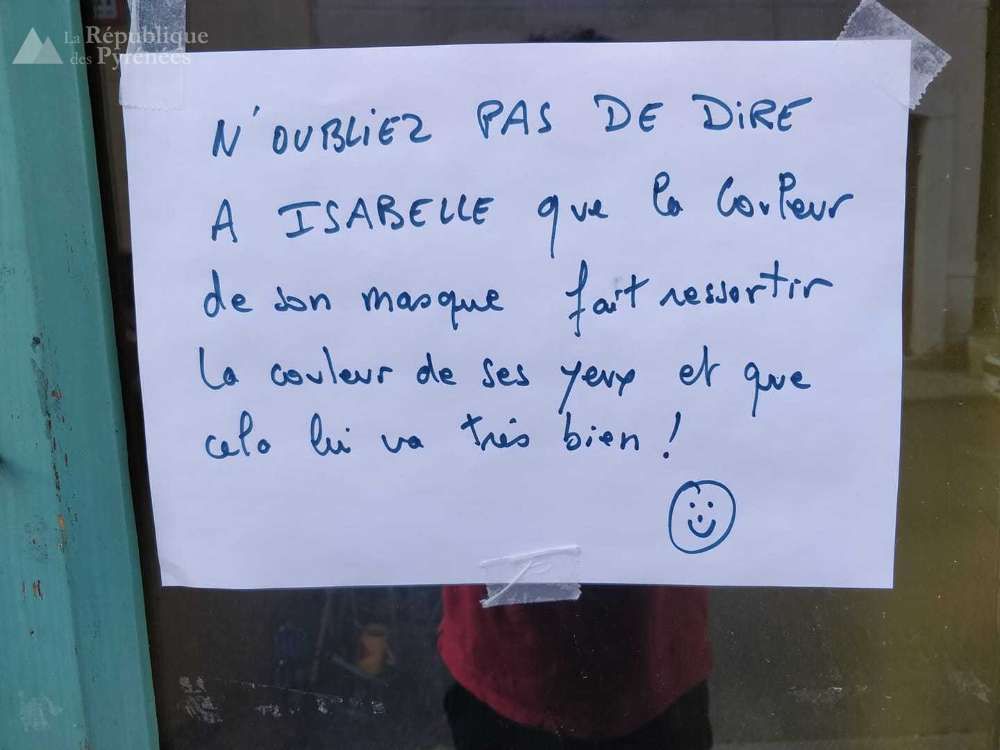 La République
des Pyrénées
N'OUBLIEZ PAS DE DiRE
A ISABELLE que la couleur
de son masque fait ressortir
la couleur de ses yeux et que
cela lui va très bien !